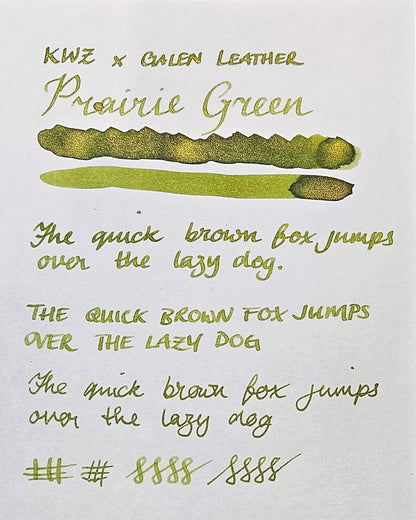 KWZ x GALEN LEATHER
Prairie Green
The quick brown fox jumps
over the lazy dog.
THE QUICK BROWN FOX JUMPS
OVER THE LAZY DOG
The quick brown fox jumps
over the lazy dog